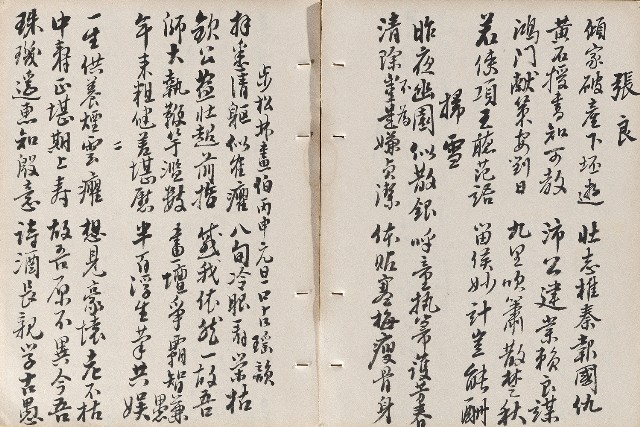 張良
傾家破產下邳遊 壯志椎秦報國仇
黃石授書知可教 沛公建業賴良謀
鴻門獻策安劉日 九里吹簫散楚秋
若使項王聽范語 留侯妙計豈能酬
掃雪
昨夜幽園似散銀 呼童執帚護芳春
清除豈是嫌貞潔 体貼寒梅瘦骨身
不為
步松 畫伯丙申元旦口占瑤韻
拜悉清軀似雀癯 八旬冷眼看榮枯
欽公益壯超前哲 我依然一故吾
師大執鞭竽濫數 畫壇爭霸智兼愚
年來粗健差堪慰 半百浮生筆共娛
二
一生供養煙雲癯 想見豪懷老不枯
中壽正堪期上壽 故吾原不異今吾
珠璣遙惠知殷意 詩酒長親學古愚